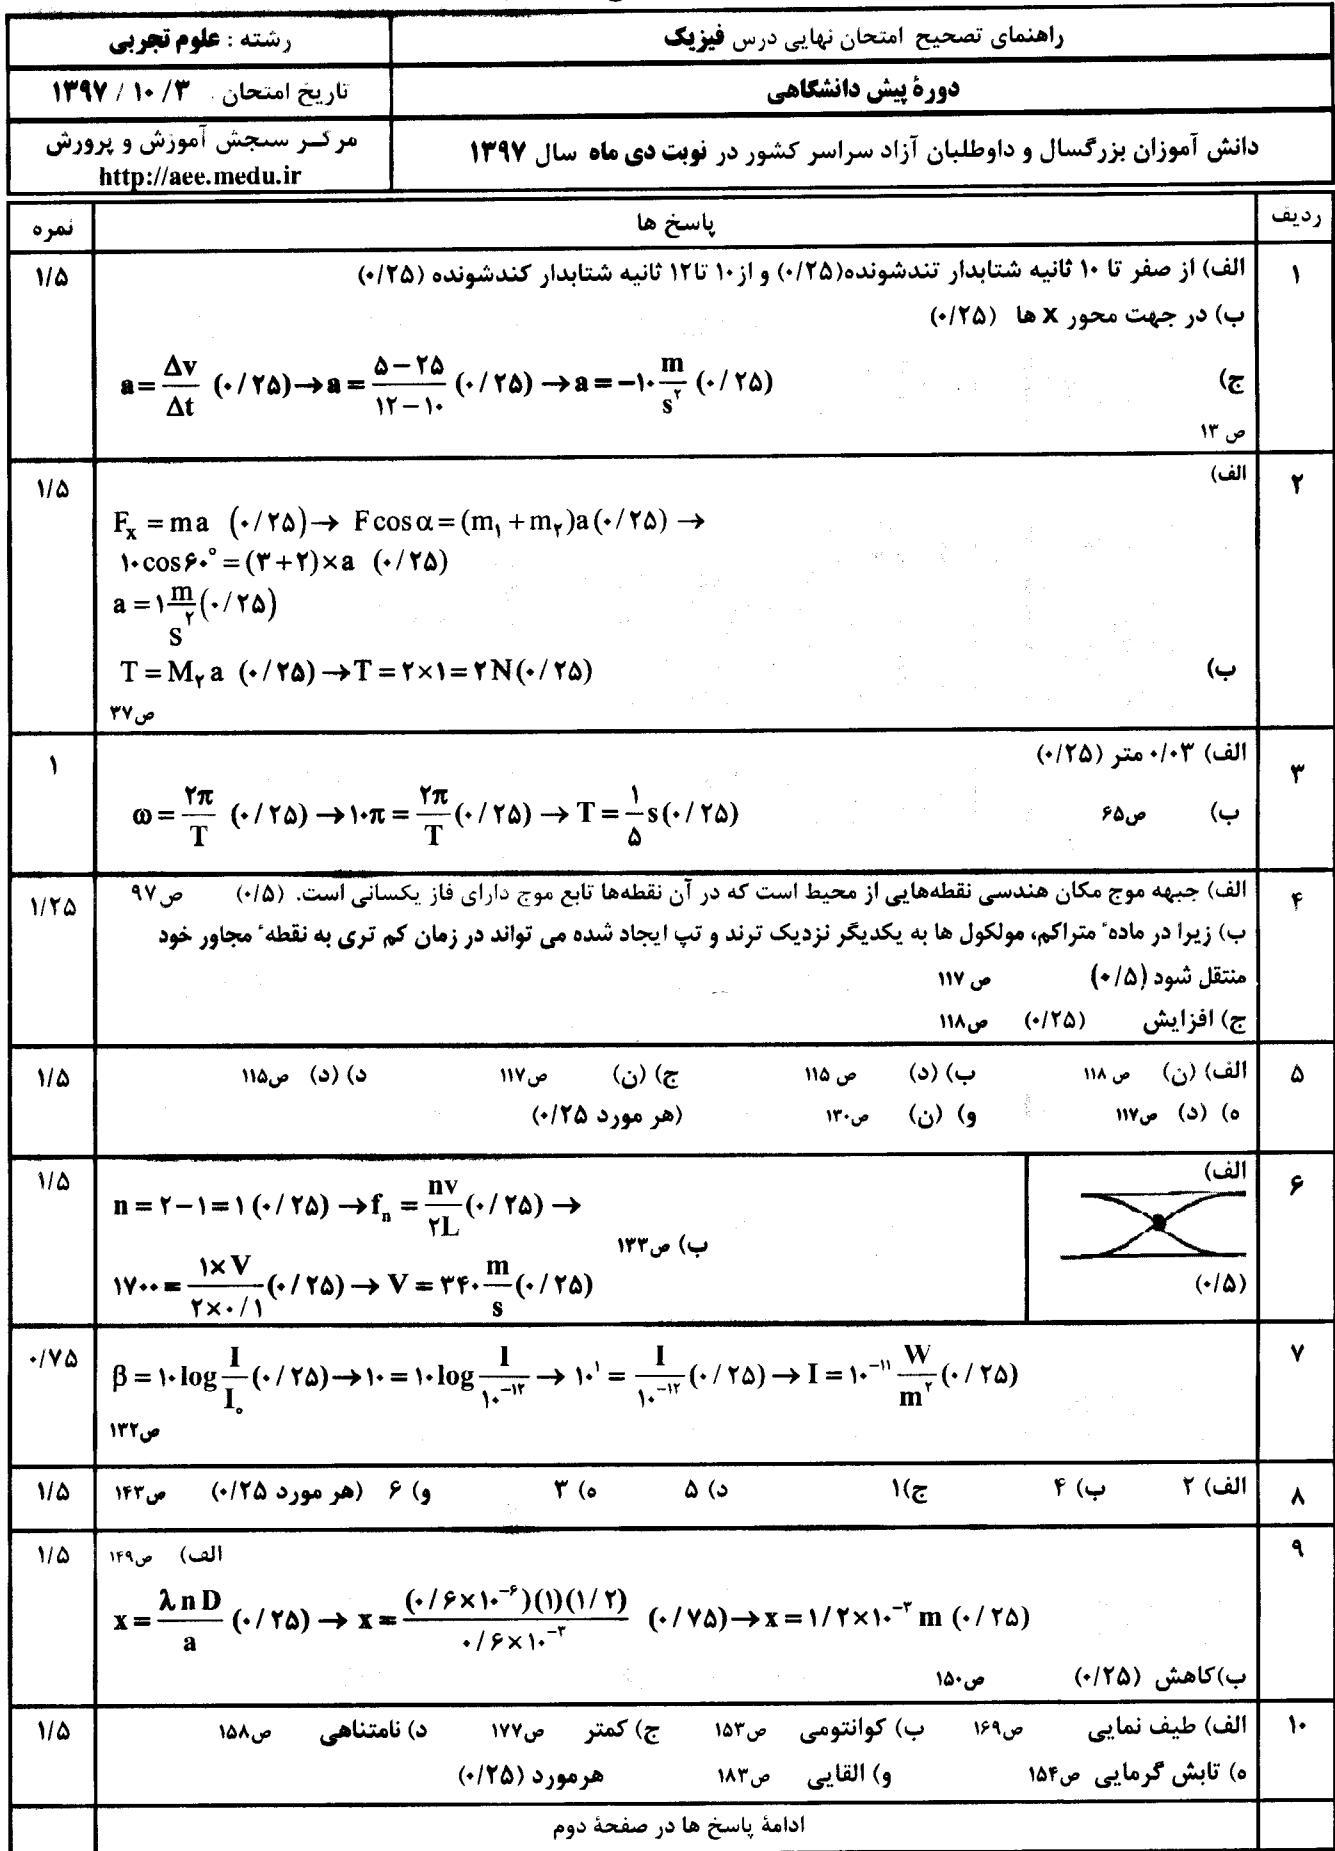 راهنمای تصحیح امتحان نهایی درس فیزیک
رشته : علوم تجربی
دورهٔ پیش دانشگاهی
تاریخ امتحان ۱۳۹۷ / ۱۰ / ۳
دانش آموزان بزرگسال و داوطلبان آزاد سراسر کشور در نوبت دی ماه سال ۱۳۹۷
مرکز سنجش آموزش و پرورش
http://aee.medu.ir
ردیف
پاسخ ها
نمره
۱
الف) از صفر تا ۱۰ ثانیه شتابدار تندشونده(۰/۲۵) و از۱۰ تا۱۲ ثانیه شتابدار کندشونده (۰/۲۵)
۱/۵
ب) در جهت محور x ها (۰/۲۵)
ج) a = Δv/Δt (۰/۲۵) → a = (۵−۲۵)/(۱۲−۱۰) (۰/۲۵) → a = −۱۰ m/s² (۰/۲۵)
ص ۱۳
۲
الف)
۱/۵
Fx = ma (۰/۲۵) → F cos α = (m۱ + m۲)a (۰/۲۵) →
۱۰cos۶۰° = (۳+۲)×a (۰/۲۵)
a = ۱ m/s² (۰/۲۵)
ب) T = M۲ a (۰/۲۵) → T = ۲×۱ = ۲N (۰/۲۵)
ص۳۷
۳
الف) ۰/۰۳ متر (۰/۲۵)
۱
ب) ص۶۵ ω = ۲π/T (۰/۲۵) → ۱۰π = ۲π/T (۰/۲۵) → T = ۱/۵ s (۰/۲۵)
۴
الف) جبهه موج مکان هندسی نقطه‌هایی از محیط است که در آن نقطه‌ها تابع موج دارای فاز یکسانی است. (۰/۵) ص۹۷
۱/۲۵
ب) زیرا در مادهٔ متراکم، مولکول ها به یکدیگر نزدیک ترند و تپ ایجاد شده می تواند در زمان کم تری به نقطهٔ مجاور خود
منتقل شود (۰/۵) ص ۱۱۷
ج) افزایش (۰/۲۵) ص۱۱۸
۵
الف) (ن) ص ۱۱۸ ب) (د) ص ۱۱۵ ج) (ن) ص۱۱۷ د) (د) ص۱۱۵
۱/۵
ه) (د) ص۱۱۷ و) (ن) ص۱۳۰ (هر مورد ۰/۲۵)
۶
الف)
(۰/۵)
۱/۵
n = ۲−۱ = ۱ (۰/۲۵) → fn = nv/۲L (۰/۲۵) →
ب) ص۱۳۳
۱۷۰۰ = ۱×V/۲×۰/۱ (۰/۲۵) → V = ۳۴۰ m/s (۰/۲۵)
۷
۰/۷۵
β = ۱۰ log I/I₀ (۰/۲۵) → ۱۰ = ۱۰ log I/۱۰⁻¹² → ۱۰¹ = I/۱۰⁻¹² (۰/۲۵) → I = ۱۰⁻¹¹ W/m² (۰/۲۵)
ص۱۳۲
۸
الف) ۲ ب) ۴ ج)۱ د) ۵ ه) ۳ و) ۶ (هر مورد ۰/۲۵) ص۱۴۳
۱/۵
۹
الف) ص۱۴۹
۱/۵
x = λ n D/a (۰/۲۵) → x = (۰/۶×۱۰⁻⁶)(۱)(۱/۲)/۰/۶×۱۰⁻³ (۰/۷۵) → x = ۱/۲×۱۰⁻³ m (۰/۲۵)
ب)کاهش (۰/۲۵) ص۱۵۰
۱۰
الف) طیف نمایی ص۱۶۹ ب) کوانتومی ص۱۵۳ ج) کمتر ص۱۷۷ د) نامتناهی ص۱۵۸
۱/۵
ه) تابش گرمایی ص۱۵۴ و) القایی ص۱۸۳ هرمورد (۰/۲۵)
ادامهٔ پاسخ ها در صفحهٔ دوم